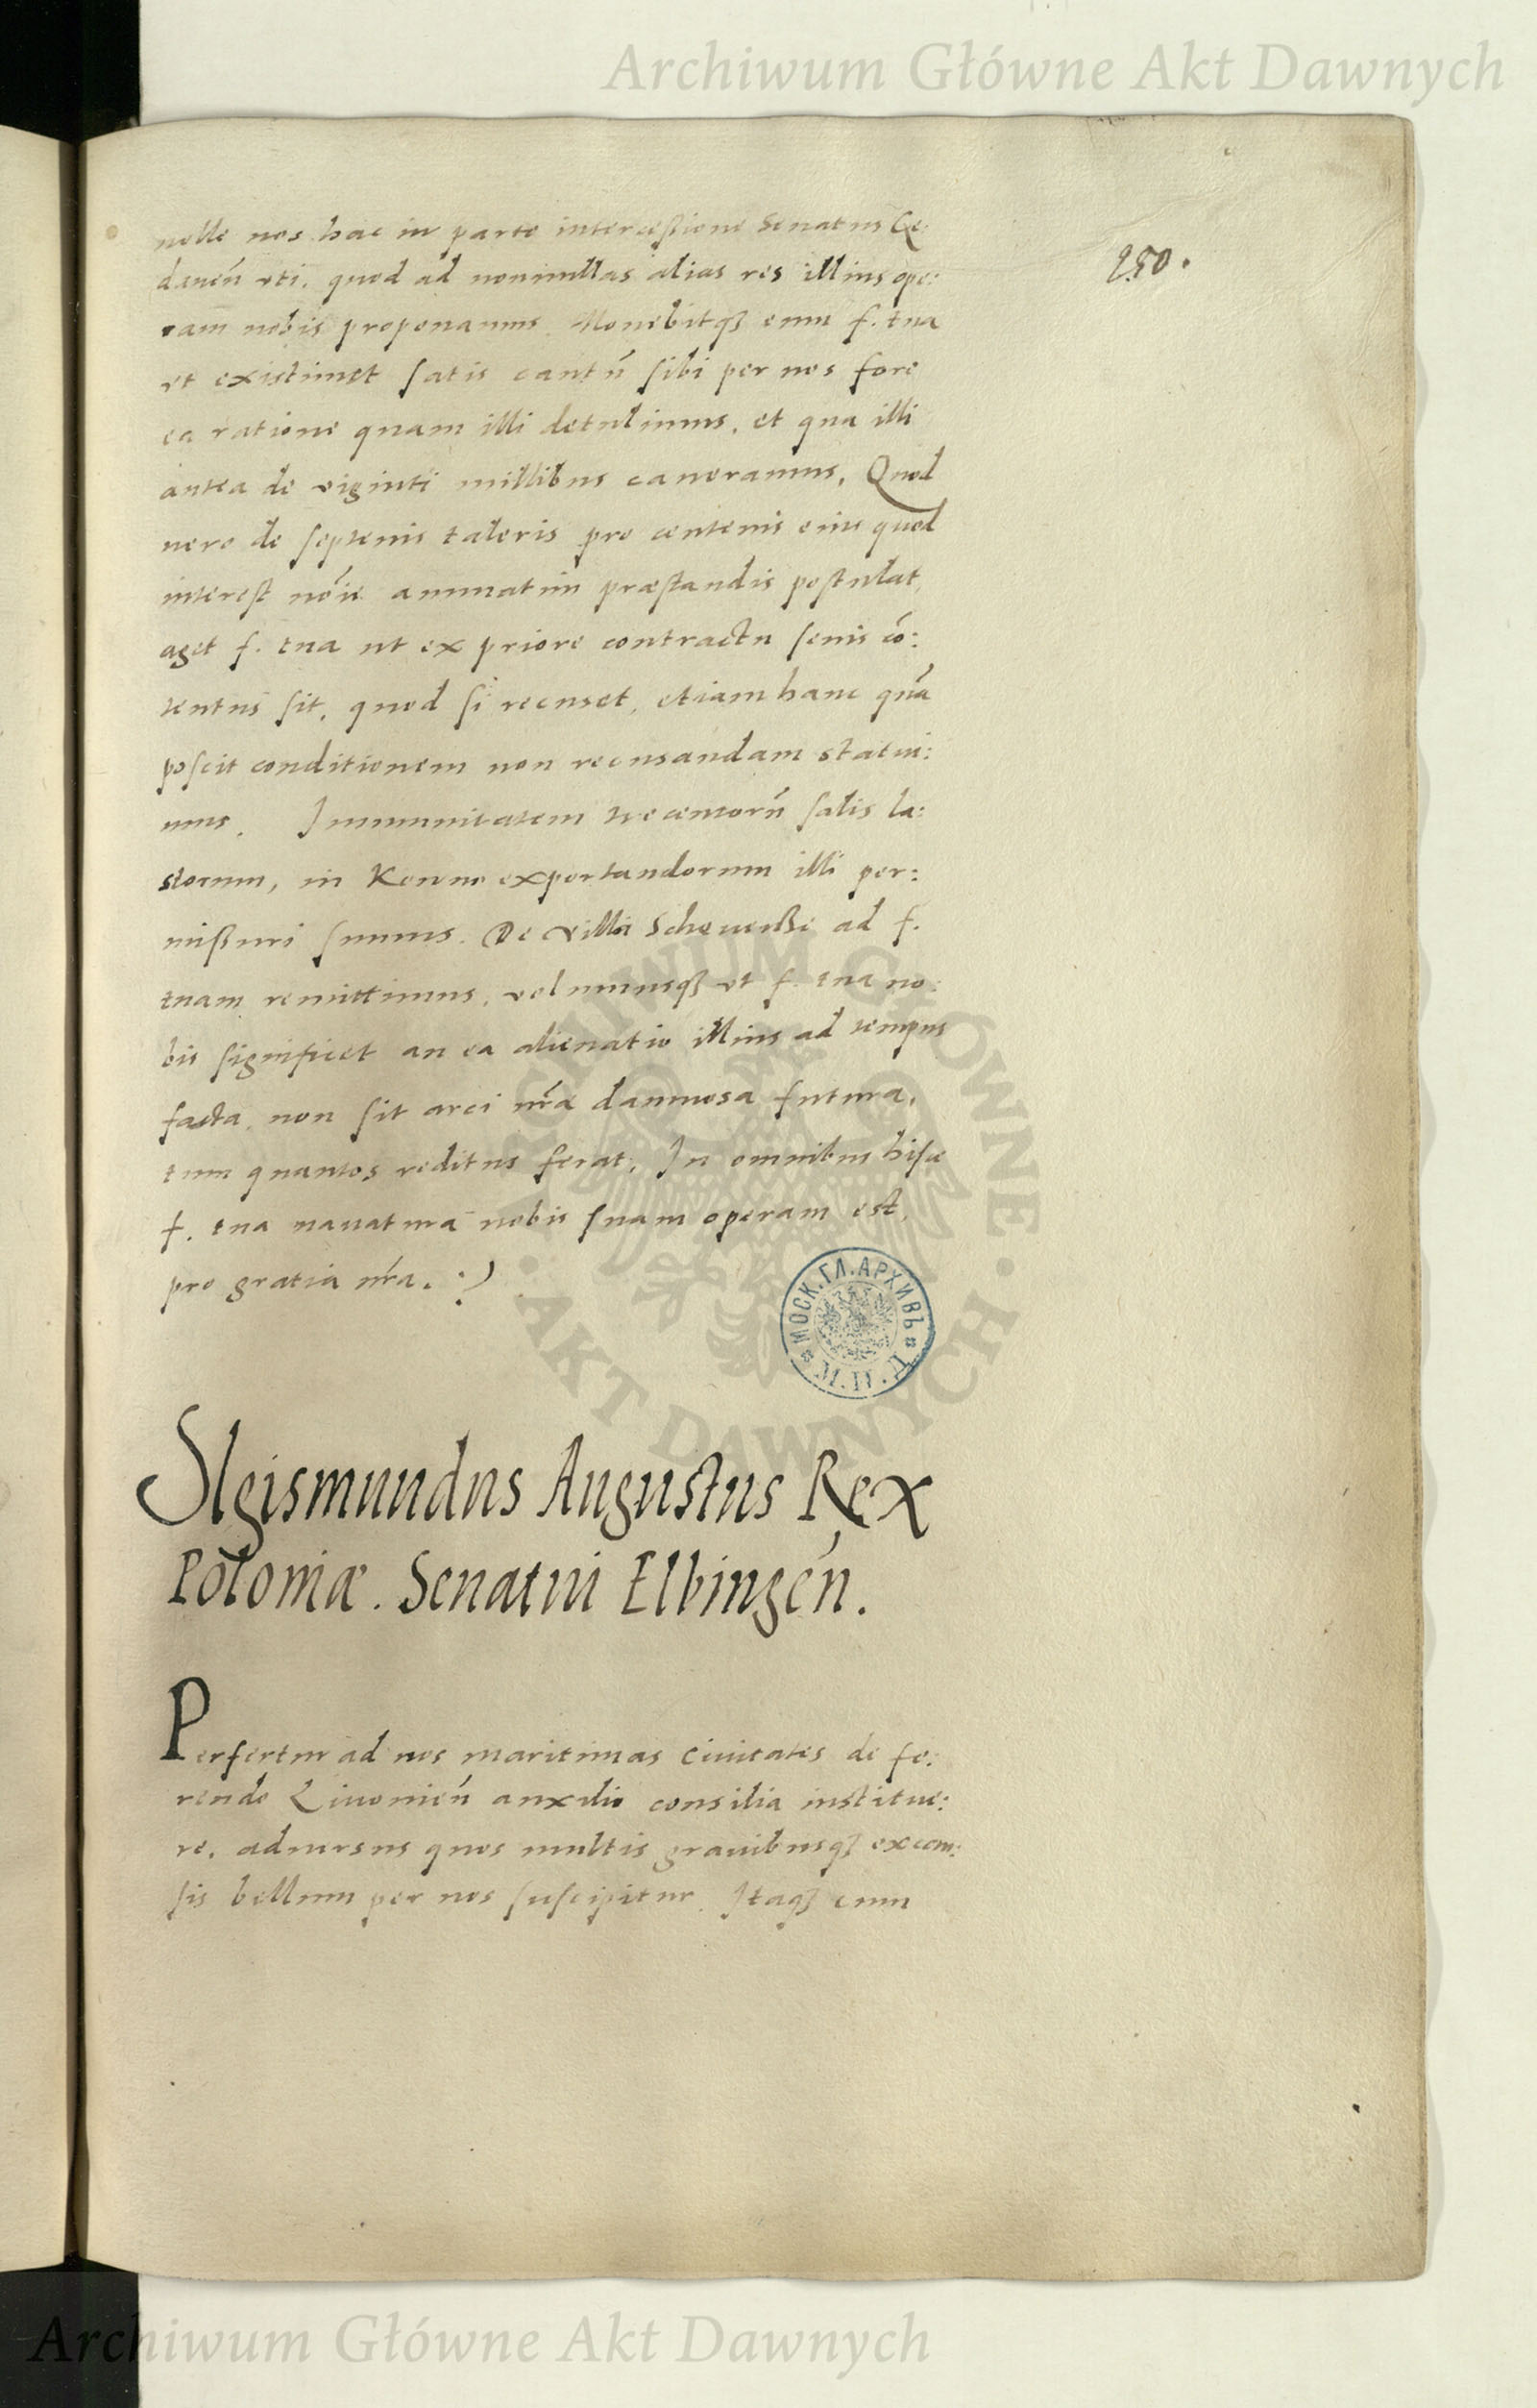 Archiwum Główne Akt Dawnych
250.
nolle nos hac in parte intercessione Senatus Ge:
danen̄ uti, quod ad nonnullas alias res illius ope:
ram nobis proponamus. Monebitqꝫ eum f. tua
ut existimet satis cautū sibi per nos fore
ea ratione quam illi detulimus, et qua illi
antea de viginti millibus caveramus. Quod
vero de septenis taleris pro centenis eius quod
interest nōie annuatim præstandis postulat,
aget f. tua ut ex priore contractu senis cō:
tentus sit, quod si recuset, etiam hanc quā
poscit conditionem non recusandam statui:
mus. Immunitatem trecentorū salis la:
storum, in Kowno exportandorum illi per:
missuri sumus. De villa ad f.
tuam remittimus, volumusqꝫ ut f. tua no:
bis significet an ea alienatio illius ad tempus
facta, non sit arci nr̄a damnosa futura,
tum quantos reditus ferat. In omnibus hisce
f. tua navatura nobis suam operam est,
pro gratia nr̄a. :)
МОСК. ГЛ. АРХИВЪ
М. И. Д.
ARCHIWUM GŁÓWNE · AKT DAWNYCH ·
SIgismundus Augustus Rex
Poloniæ. Senatui Elbingen̄.
Perfertur ad nos maritimas civitates de fe:
rendo Livonien̄ auxilio consilia institue:
re, adversus quos multis gravibusqꝫ ex cau:
sis bellum per nos suscipitur. Itaqꝫ cum
Archiwum Główne Akt Dawnych